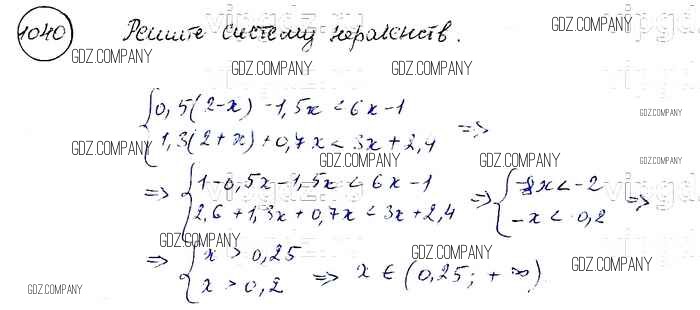 1040 Решите систему неравенств.
GDZ.COMPANY GDZ.COMPANY GDZ.COMPANY GDZ.COMPANY GDZ.COMPANY
{ 0,5(2-x) - 1,5x < 6x - 1
{ 1,3(2+x) + 0,7x < 3x + 2,4 =>
GDZ.COMPANY GDZ.COMPANY GDZ.COMPANY GDZ.COMPANY
=> { 1 - 0,5x - 1,5x < 6x - 1 => { -8x < -2 =>
{ 2,6 + 1,3x + 0,7x < 3x + 2,4 { -x < -0,2
GDZ.COMPANY GDZ.COMPANY GDZ.COMPANY GDZ.COMPANY
=> { x > 0,25
{ x > 0,2 => x ∈ (0,25; +∞)
GDZ.COMPANY GDZ.COMPANY GDZ.COMPANY GDZ.COMPANY